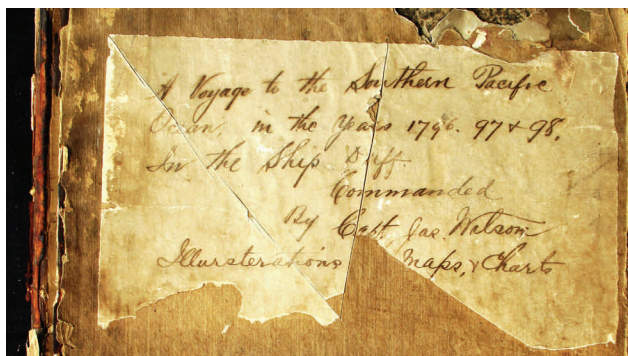 A Voyage to the Southern Pacific
Ocean, in the Years 1796. 97 & 98.
In the Ship Duff
Commanded
By Capt Jas. Watson
Illursterations Maps, & Charts